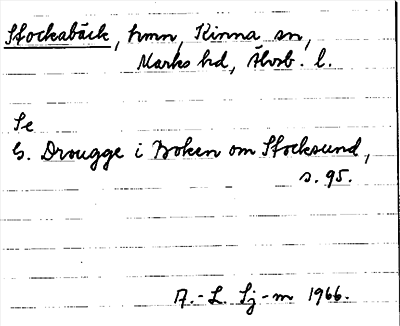 Stocksbäck, hmn, Kinna sn,
Marks hd, Älvsb. l.
Se
G. Drougge i Boken om Stocksund,
s. 95.
A.-L. Sj-m 1966.